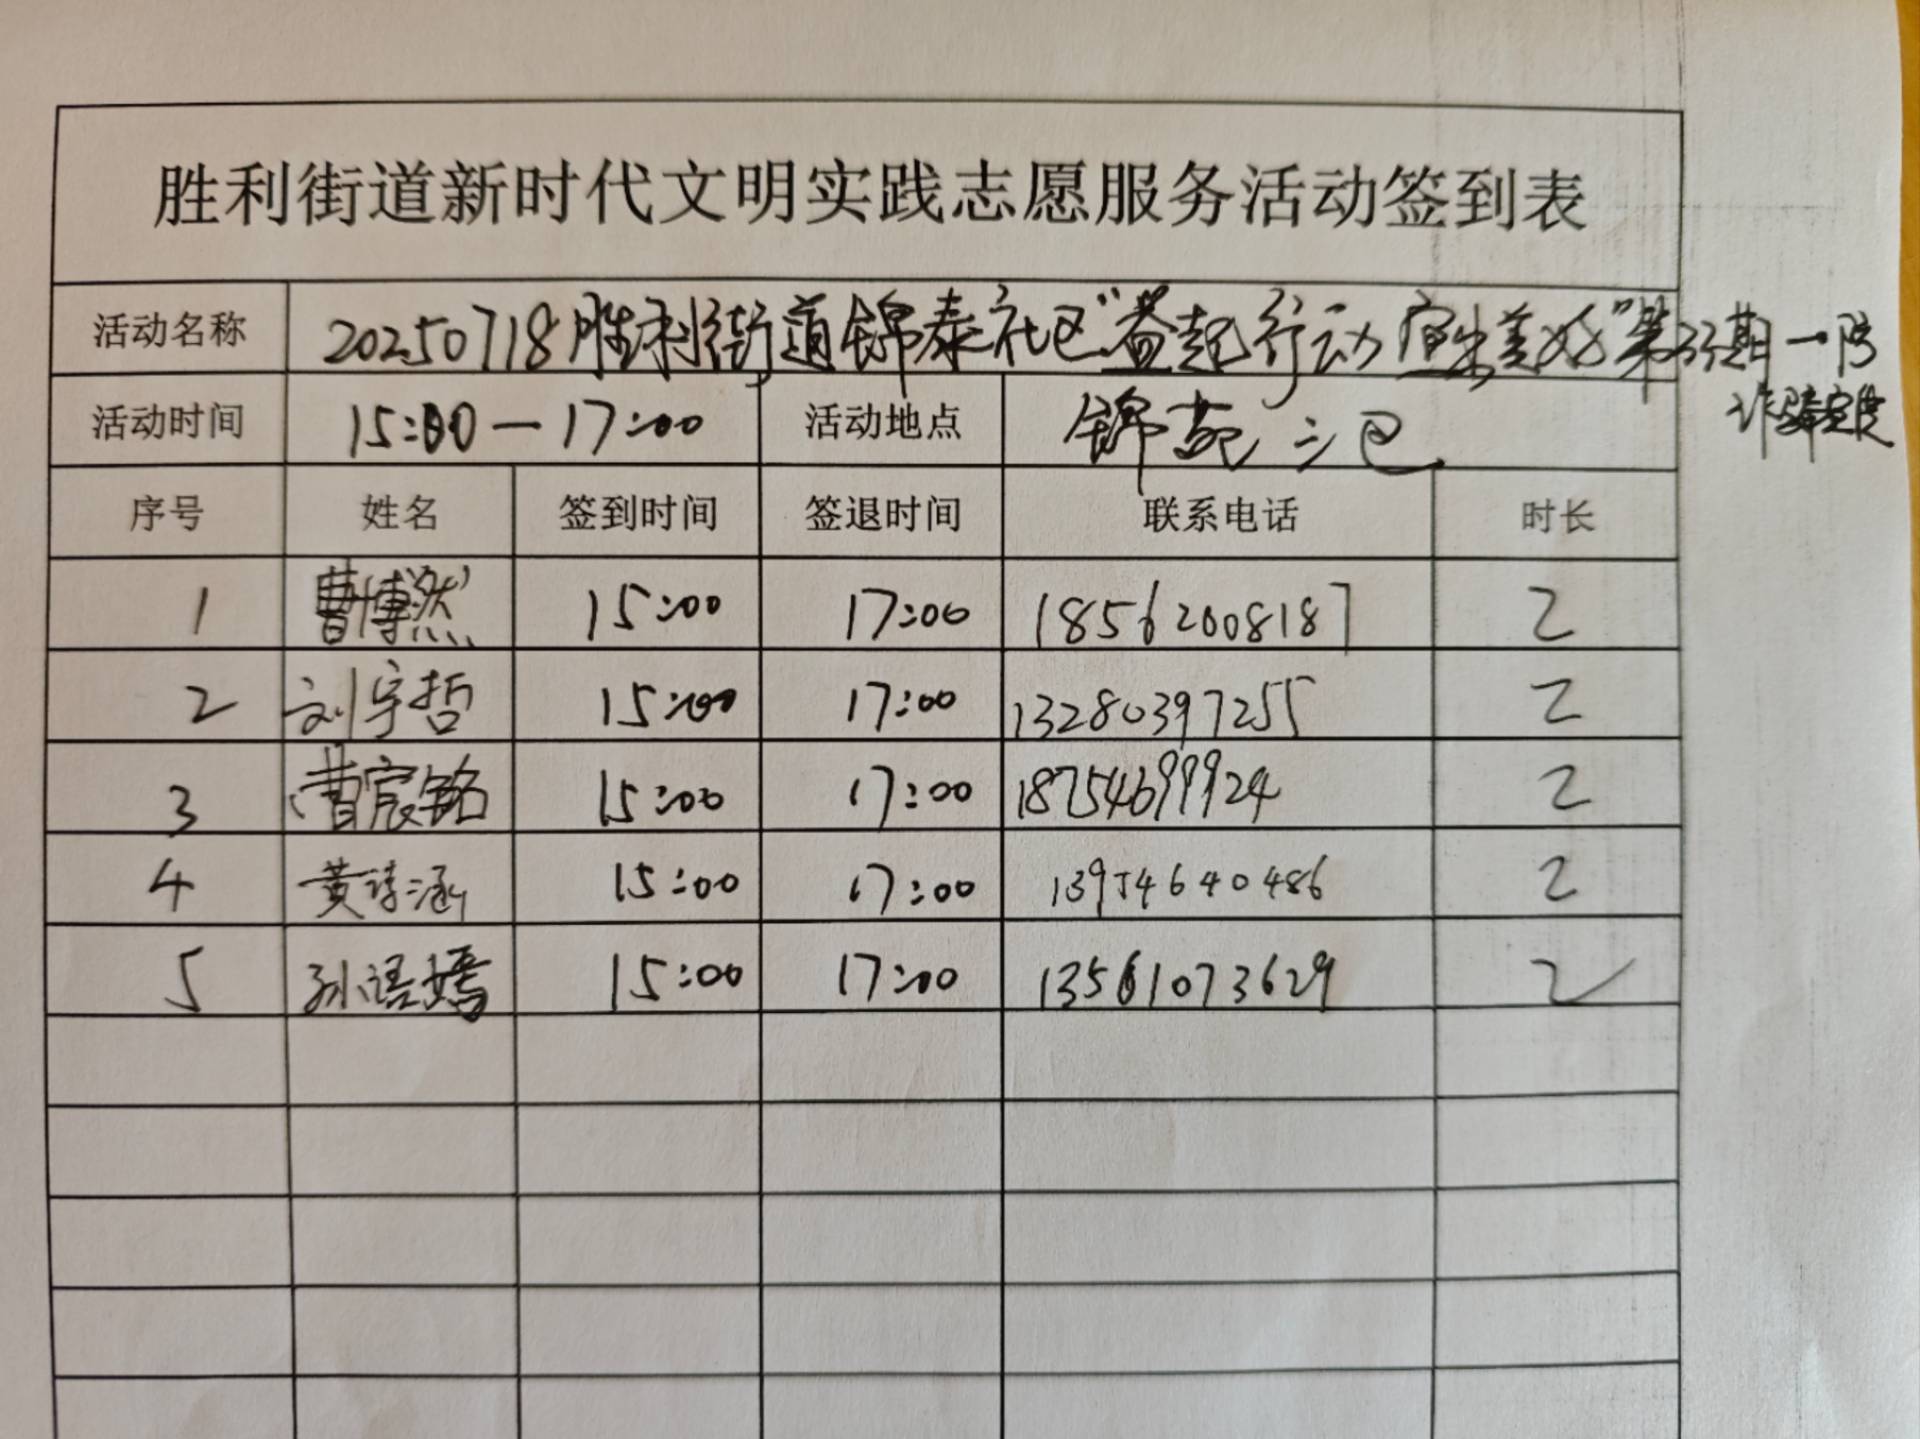 胜利街道新时代文明实践志愿服务活动签到表
活动名称 20250718胜利街道锦泰社区“益起行动 宜生美好”第33期一防
诈骗宣传
活动时间 15:00—17:00 活动地点 锦苑三区
序号 姓名 签到时间 签退时间 联系电话 时长
1 曹博然 15:00 17:00 18562008187 2
2 刘宇哲 15:00 17:00 13280397255 2
3 曹宸铭 15:00 17:00 18754699924 2
4 黄诗涵 15:00 17:00 13954640486 2
5 孙语嫣 15:00 17:00 13561073629 2